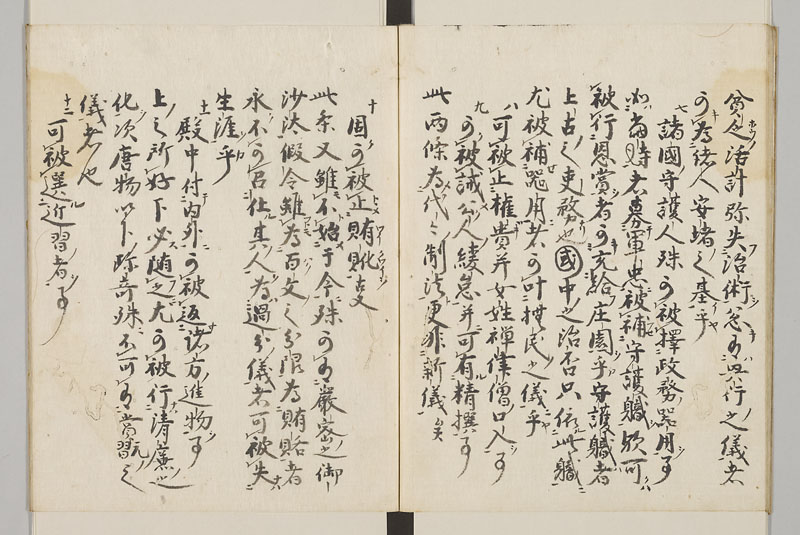 貧乏活計弥失治術忽有興行之儀者
可為諸人安堵之基乎
七 諸國守護人殊可被擇政務器用事
如當時者募軍忠被補守護職歟可
被行恩賞者可充給庄園乎守護職者
上古之吏務也國中之治否只依此職
尤被補器用者可叶撫民之儀乎
八 可被止權貴并女姓禅律僧口入事
九 可被誡公人緩怠并可有精撰事
此兩條為代々制法更非新儀矣
十 固可被止賄貨事
此条又雖不始于今殊可有嚴密之御
沙汰假令雖為百文之分限為賄賂者
永不可召仕其人為過分儀者可被失
生涯乎
十一 殿中付内外可被返諸方進物事
上之所好下必随之尤可被行清廉之
化次唐物以下珎奇殊不可有賞習之
儀者也
十二 可被選近習者事